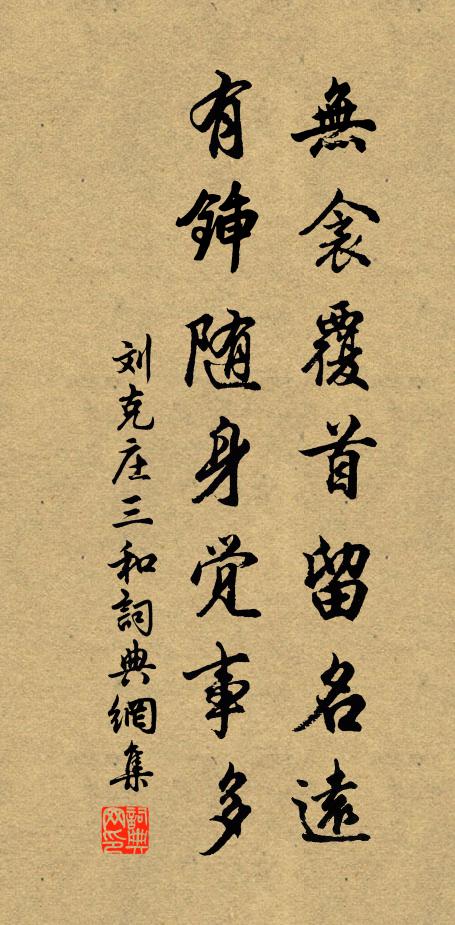 無衾覆首留名遠
有鍤随身觉事多
刘克庄三和詞典網集
詞典网印